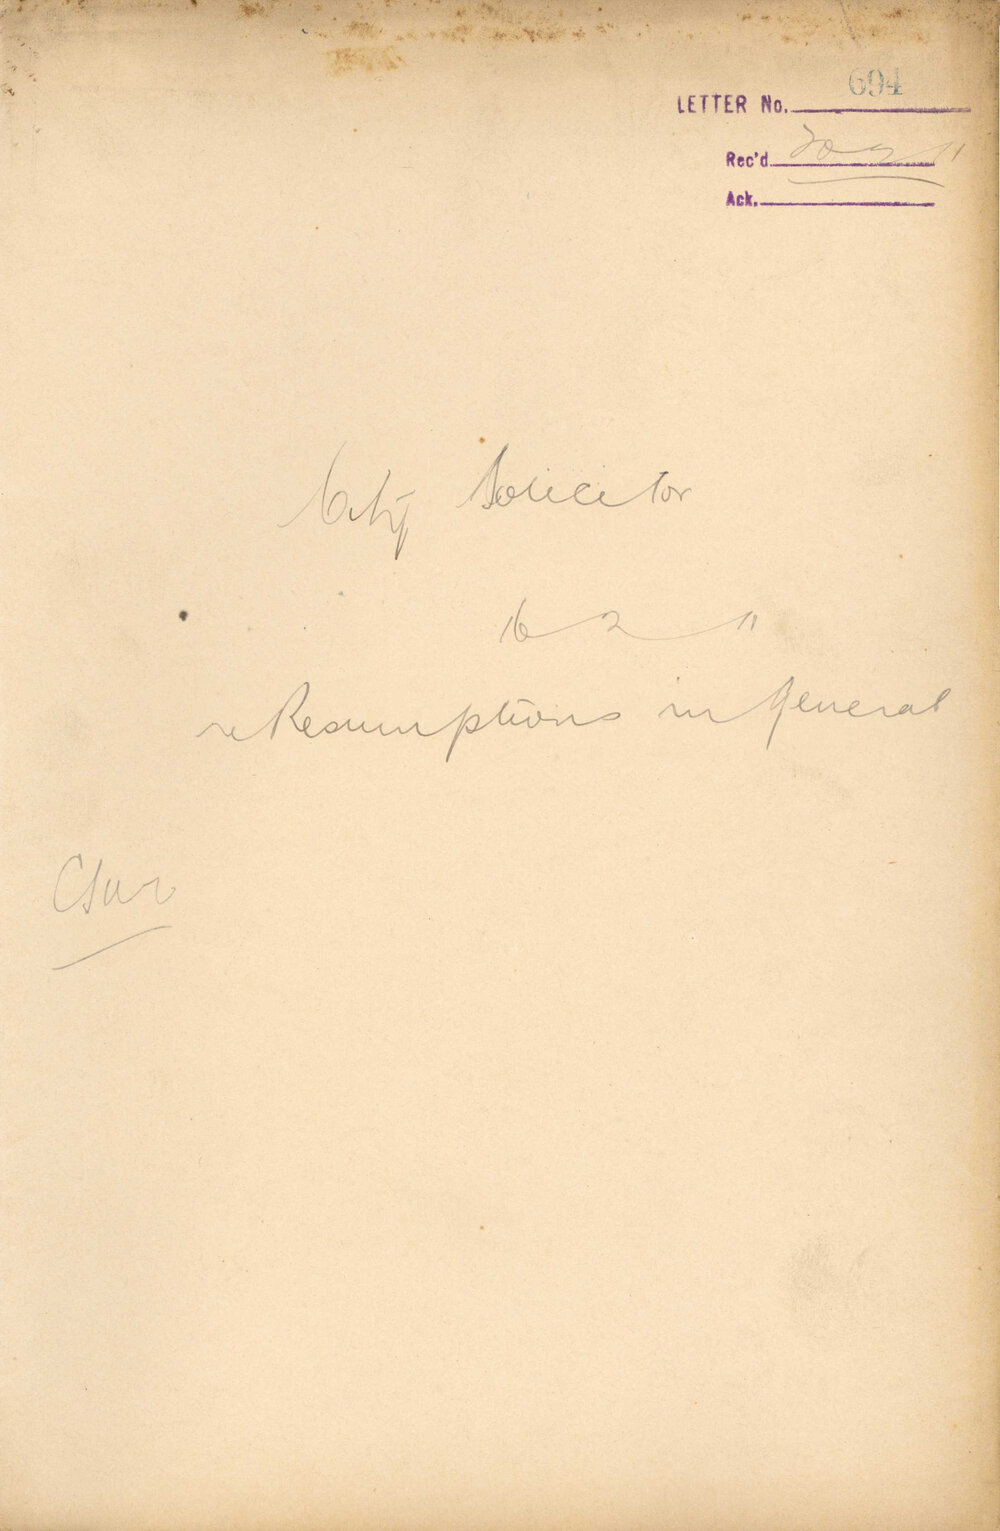 LETTER No. 694
Rec'd 20 2 11
Ack.
City Solicitor
16 2 11
re Resumptions in General
CSur